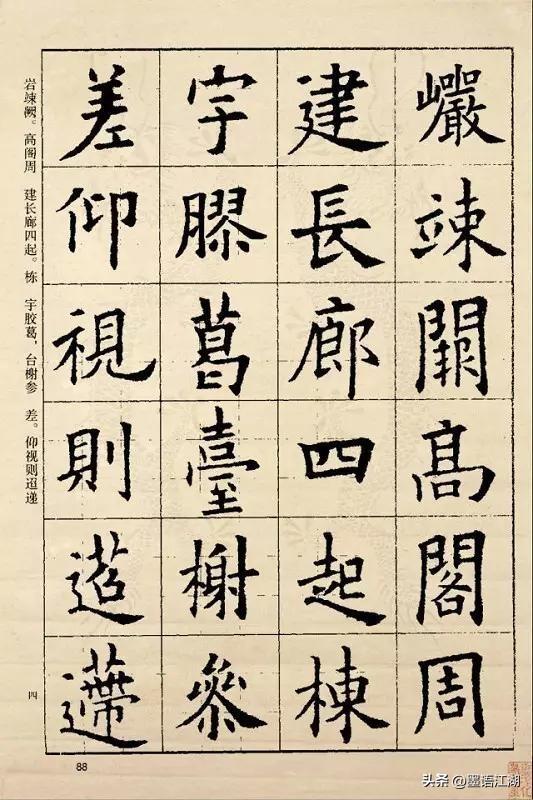 巗竦闕髙閣周
建長廊四起棟
宇膠葛臺榭參
差仰視則迢遰
岩竦阙。高阁周 建长廊四起。栋 宇胶葛，台榭参 差。仰视则迢递
四
88
头条 @墨语江湖